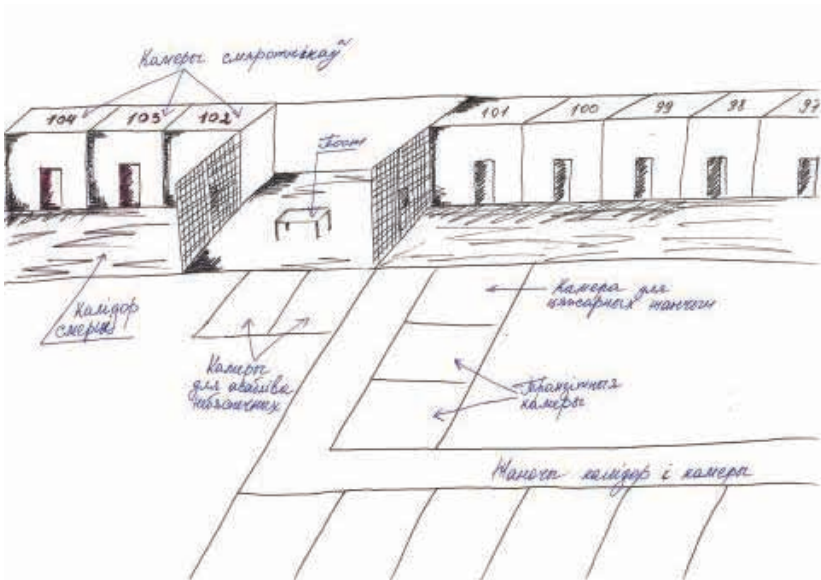 Камеры смяротнікаў
104 103 102 101 100 99 98 97
Пост
Калідор
смерці
Камеры
для асабліва
небяспечных
Камера для
цяжарных жанчын
Транзітныя
камеры
Жаночы калідор і камеры